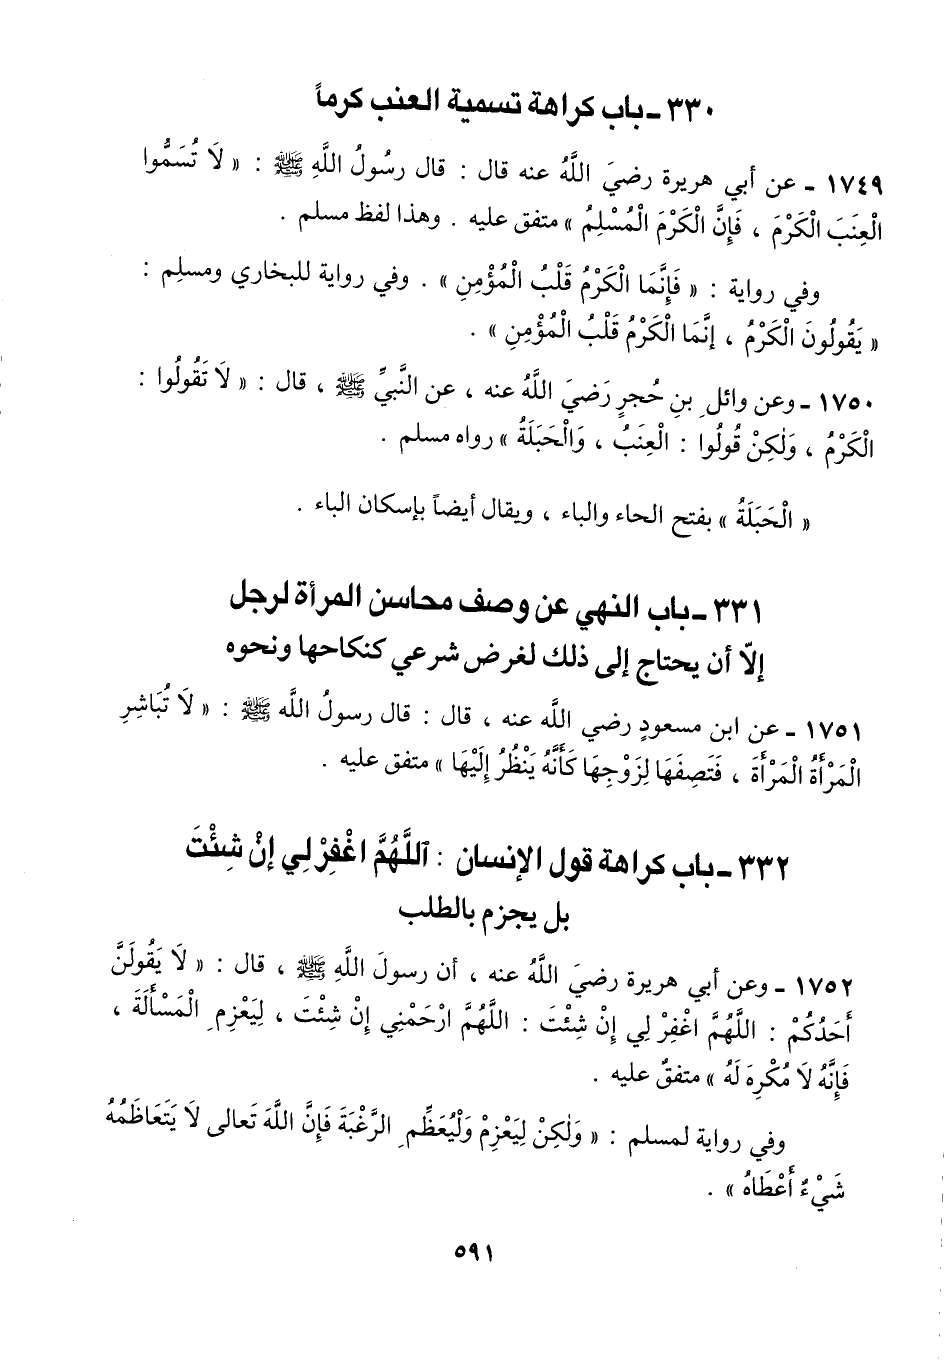 ٣٣٠ ـ باب كراهة تسمية العنب كرماً
١٧٤٩ ـ عن أبي هريرة رضيَ اللَّهُ عنه قال : قال رسُولُ اللَّهِ ﷺ : « لَا تُسَمُّوا
الْعِنَبَ الْكَرْمَ ، فَإِنَّ الْكَرْمَ الْمُسْلِمُ » متفق عليه . وهذا لفظ مسلم .
وفي رواية : « فَإِنَّمَا الْكَرْمُ قَلْبُ الْمُؤْمِنِ » . وفي رواية للبخاري ومسلِم :
« يَقُولُونَ الْكَرْمُ ، إِنَّمَا الْكَرْمُ قَلْبُ الْمُؤْمِنِ » .
١٧٥٠ ـ وعن وائلِ بنِ حُجرٍ رَضيَ اللَّهُ عنه ، عن النَّبيِّ ﷺ ، قال : « لَا تَقُولُوا :
الْكَرْمُ ، وَلٰكِنْ قُولُوا : الْعِنَبُ ، وَالْحَبَلَةُ » رواه مسلم .
« الْحَبَلَةُ » بفتح الحاء والباء ، ويقال أيضاً بإسكان الباء .
٣٣١ ـ باب النهي عن وصف محاسن المرأة لرجل
إلاّ أن يحتاج إلى ذلك لغرض شرعي كنكاحها ونحوه
١٧٥١ ـ عن ابن مسعودٍ رضي اللَّه عنه ، قال : قال رسولُ اللَّه ﷺ : « لَا تُبَاشِرِ
الْمَرْأَةُ الْمَرْأَةَ ، فَتَصِفَهَا لِزَوْجِهَا كَأَنَّهُ يَنْظُرُ إِلَيْهَا » متفق عليه .
٣٣٢ ـ باب كراهة قول الإنسان : اَللَّهُمَّ اغْفِرْ لِي إِنْ شِئْتَ
بل يجزم بالطلب
١٧٥٢ ـ وعن أبي هريرة رضيَ اللَّهُ عنه ، أن رسولَ اللَّهِ ﷺ ، قال : « لَا يَقُولَنَّ
أَحَدُكُمْ : اللَّهُمَّ اغْفِرْ لِي إِنْ شِئْتَ : اللَّهُمَّ ارْحَمْنِي إِنْ شِئْتَ ، لِيَعْزِمِ الْمَسْأَلَةَ ،
فَإِنَّهُ لَا مُكْرِهَ لَهُ » متفقٌ عليه .
وفي رواية لمسلم : « وَلٰكِنْ لِيَعْزِمْ وَلْيُعَظِّمِ الرَّغْبَةَ فَإِنَّ اللَّهَ تَعالى لَا يَتَعَاظَمُهُ
شَيْءٌ أَعْطَاهُ » .
٥٩١